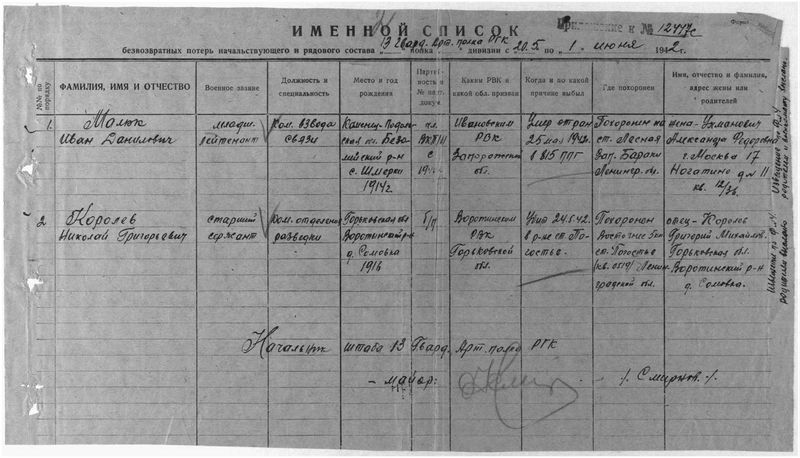 ИМЕННОЙ СПИСОК
Приложение к № 12477с
безвозвратных потерь начальствующего и рядового состава 13 Гвард. Арт. полка РГК дивизии с 20.5 по 1 июня 1942 г.
№№ по порядку
ФАМИЛИЯ, ИМЯ И ОТЧЕСТВО
Военное звание
Должность и специальность
Место и год рождения
Партийность и №№ парт. докум.
Каким РВК и какой обл. призван
Когда и по какой причине выбыл
Где похоронен
Имя, отчество и фамилия, адрес жены или родителей
1.
Малюк
Иван Данилович
младш.
лейтенант
Ком. взвода
связи
Каменец-Подоль
ская
р-н
с. Шмырки
1914 г.
чл.
ВКП/б/
с
Ивановским
РВК
Запорожской
обл.
Умер от ран
25 мая 1942
в 815 ППГ
Похоронен на
ст. Лесная
Зап. Бараки
Ленингр. обл.
жена-
Александра Федоровн
г. Москва 17
Ногатино дм 11
кв. 12/36.
2
Королев
Николай Григорьевич
старший
сержант
Ком. отделения
разведки
Горьковская обл
Воротынский р-н
д. Сомовка
1916
б/п
Воротынским
РВК
Горьковской
обл.
Убит 24.5.42.
в р-не ст. По-
гостье.
Похоронен
ст. Погостье
Ленин-
градской обл.
отец-Королев
Григорий Михайлов.
Горьковская обл.
Воротынский р-н
д. Сомовка.
Начальник штаба 13 Гвард. Арт. полка РГК
– майор:
/. Смирнов. /.